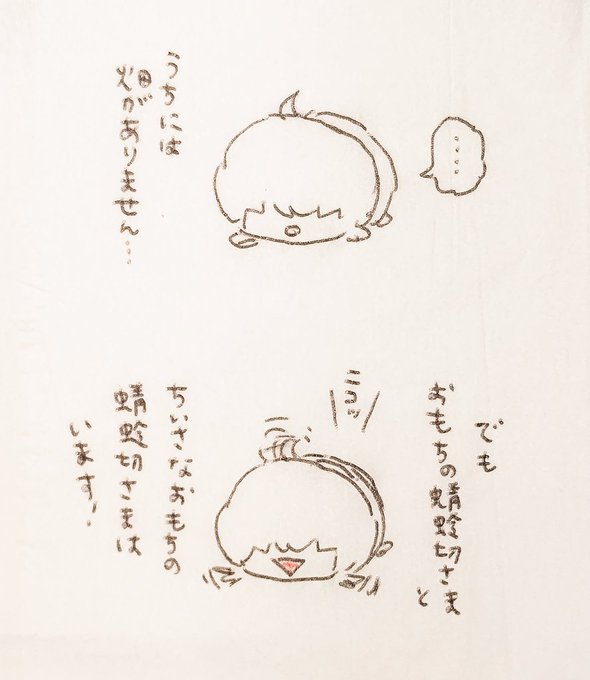 ‥‥
うちには
畑がありません…
でも
おもちの蜻蛉切さま
と
ニコッ
ちいさなおもちの
蜻蛉切さまは
います!